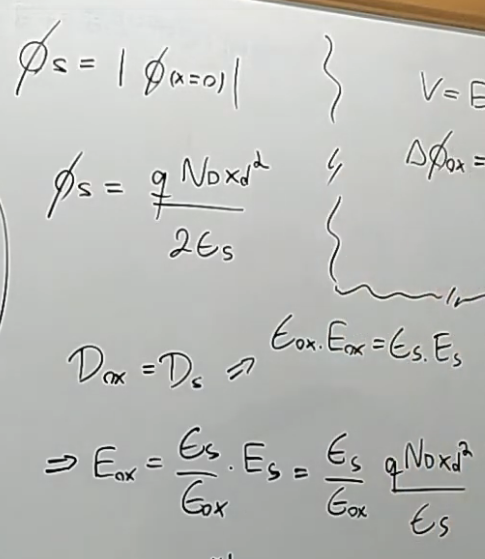 ϕs = | ϕ(x=0) |
V = E
ϕs = q N_D x_d² / 2ϵs
Δϕox =
Dox = Ds ⇒ ϵox . Eox = ϵs . Es
⇒ Eox = ϵs / ϵox . Es = ϵs / ϵox q N_D x_d² / ϵs